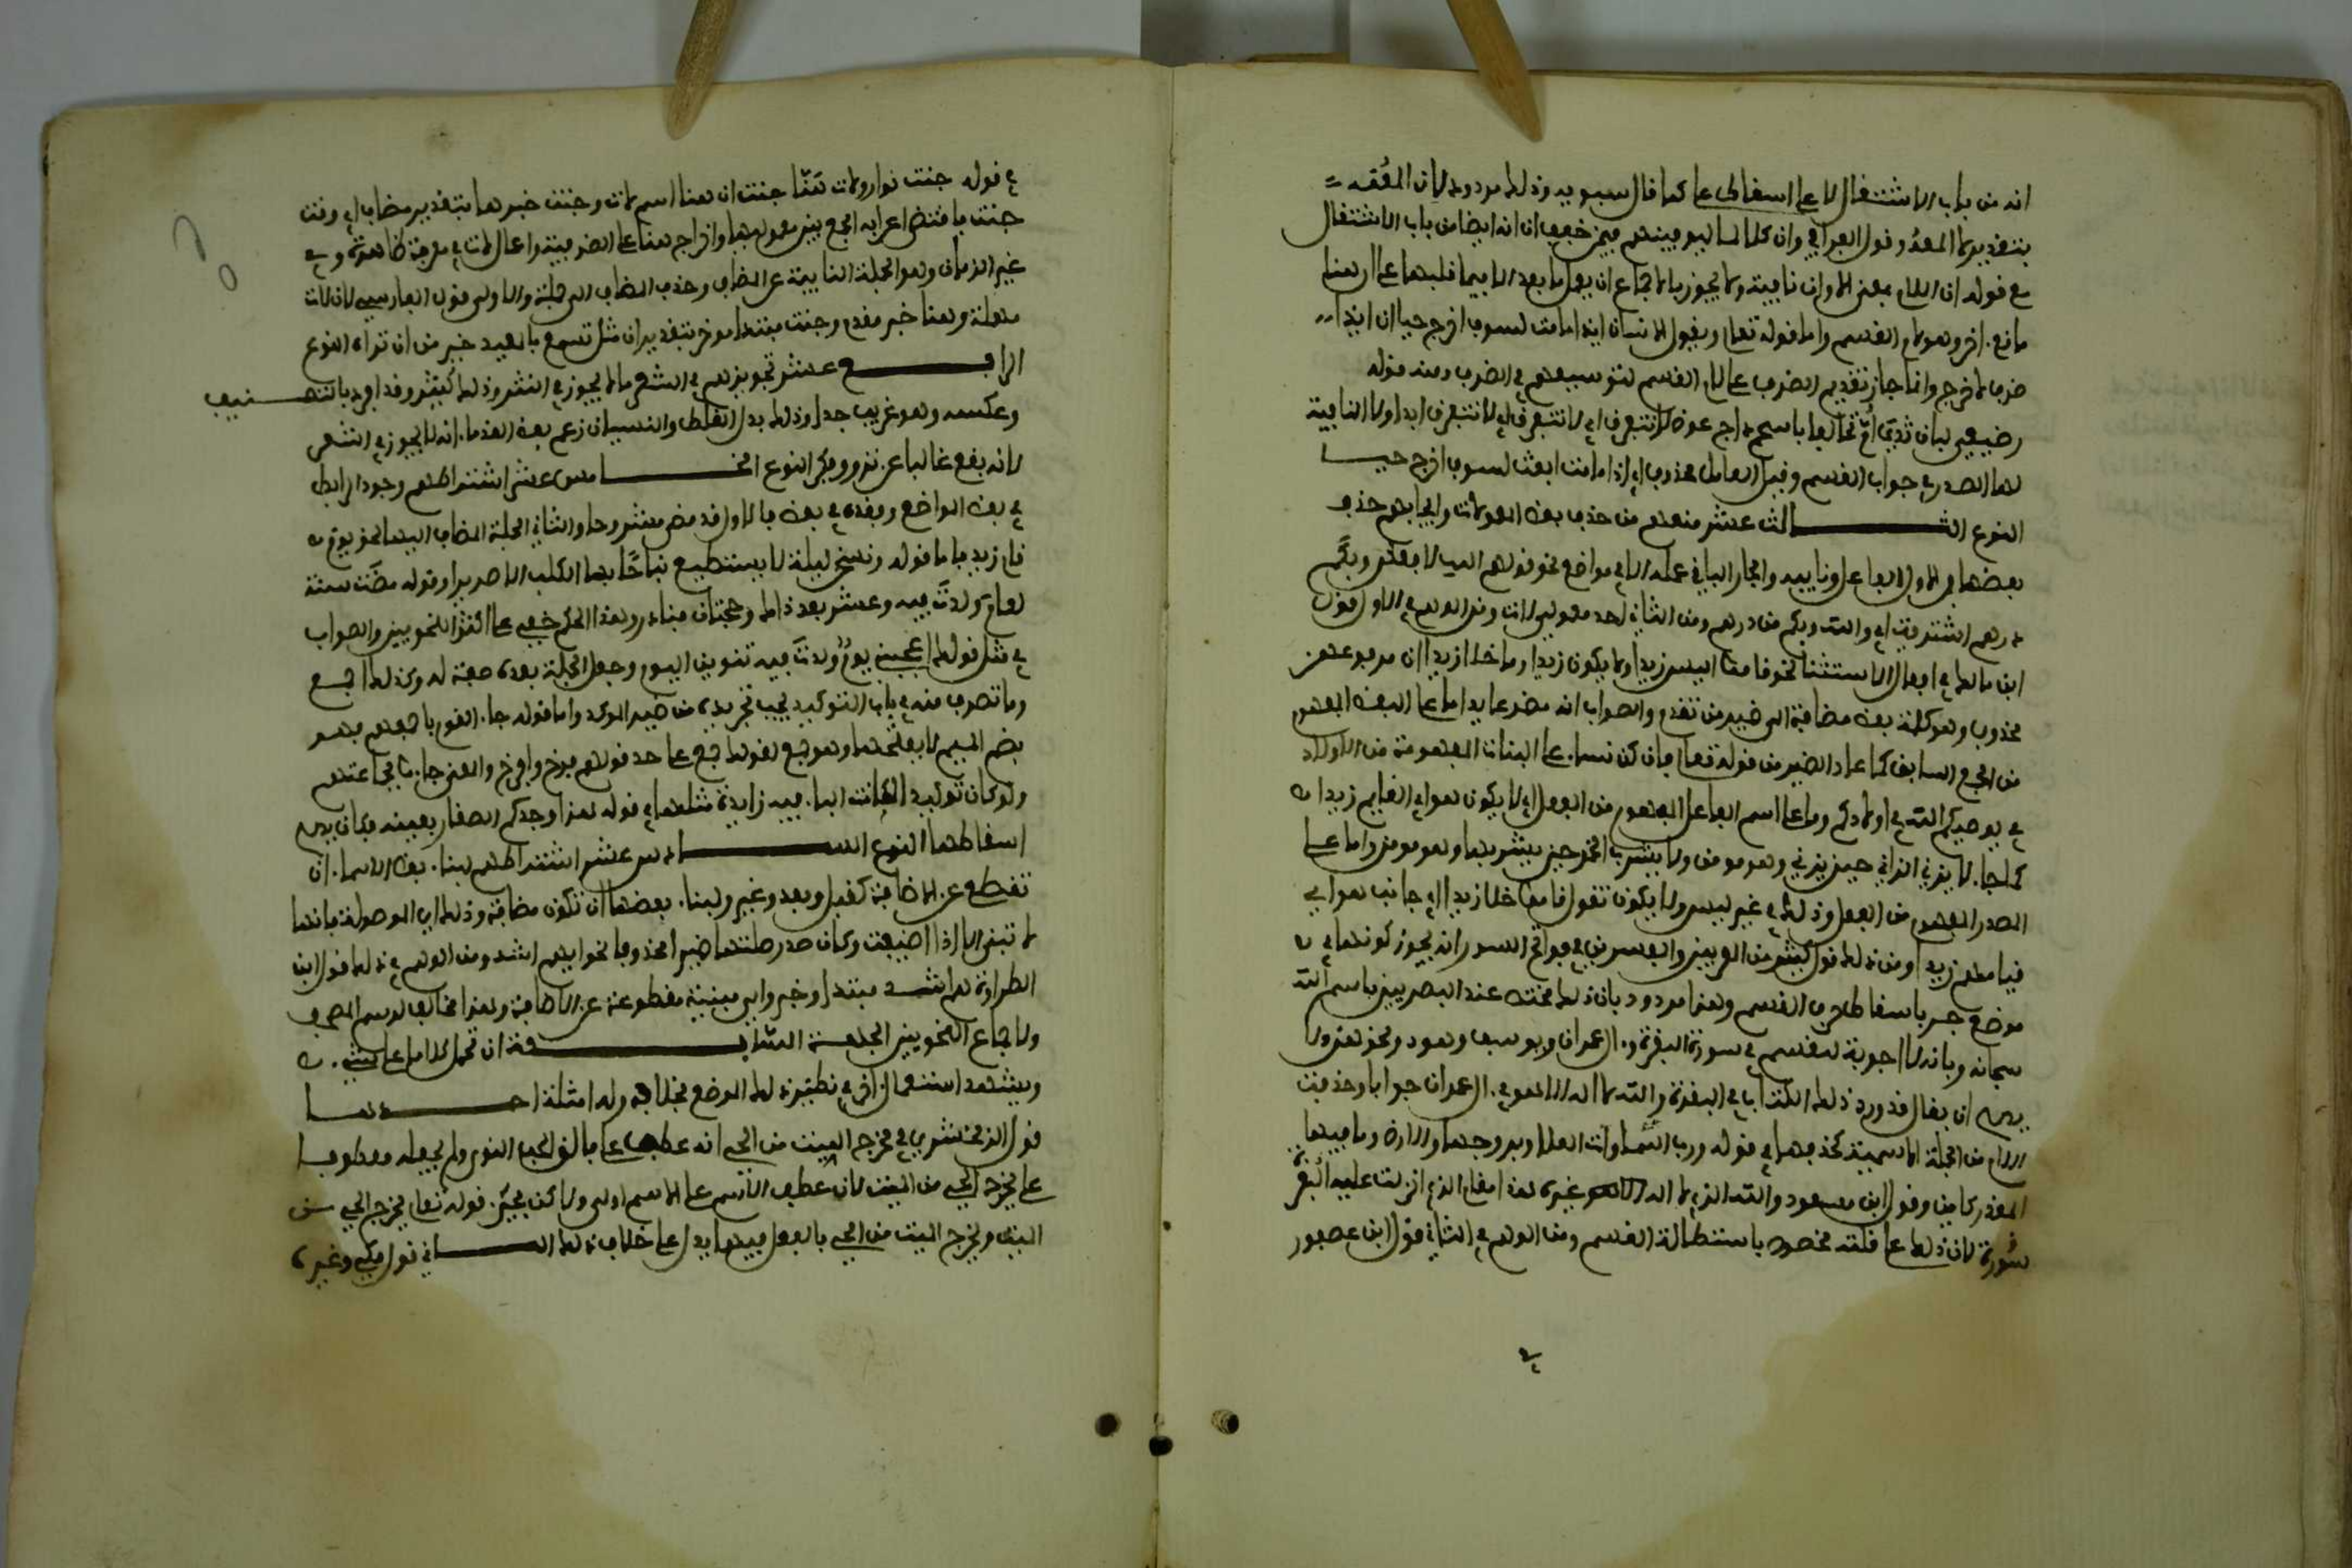 انه من باب الاشتغال لا على اسقاط على كما قال سيبويه وذلك مردود لان المقسم
بتقديره لا المعد وقول الفراء وان كلا لما ليوفينهم فيمن خفف ان انه ايضا من باب الاشتغال
مع قوله ان اللام بمعنى الا وان نافية ولا يجوز بالاجماع ان يعمل ما بعد الا فيما قبلها على ان هنا
مانع اخر وهو لام القسم واما قوله تعالى ويقول الانسان اءذا ما مت لسوف اخرج حيا ان اذا
ظرف لاخرج وانما جاز تقديم الظرف على لام القسم لتوسعهم في الظرف ومنه قوله
رضيعي لبان ثدي ام تحالفا باسحم داج عوض لا نتفرق اي لا نتفرق ابدا ولا النافية
لها الصدر في جواب القسم وقيل العامل محذوف اي اذا ما مت ابعث لسوف اخرج حيا
النوع الثالث عشر منعهم من حذف بعض الكلمات وايجابهم حذف
بعضها فمن الاول الفاعل ونايبه والجار الباقي عمله الا في مواضع نحو قولهم الله لافعلن وبكم
درهم اشتريت اي والله وبكم من درهم ومن الثاني احد معمولي لات ومن الوهم في الاول قول
ابن مالك في افعال الاستثنا نحو قاموا ليس زيدا ولا يكون زيدا وما خلا زيدا ان مرفوعهن
محذوف وهو كلمة بعض مضافة الى ضمير من تقدم والصواب انه مضمر عايد اما على البعض المفهوم
من الجمع السابق كما عاد الضمير من قوله تعالى فان كن نساء على البنات المفهومة من الاولاد
في يوصيكم الله في اولادكم واما على اسم الفاعل المفهوم من الفعل اي لا يكون هو اي القايم زيدا
كما جاء لا يزني الزاني حين يزني وهو مومن ولا يشرب الخمر حين يشربها وهو مومن واما على
المصدر المفهوم من الفعل وذلك في غير ليس ولا يكون تقول قاموا خلا زيدا اي جانب هو اي
قيامهم زيدا ومن ذلك قول كثير من المعربين والمفسرين في فواتح السور انه يجوز كونها في
موضع جر باسقاط حرف القسم وهذا مردود بان ذلك مختص عند البصريين باسم الله
سبحانه وبانه لا اجوبة للقسم في سورة البقرة وال عمران ويوسف وهود ونحوهن ولا
يصح ان يقال قدر ذلك الكتاب في البقرة والله لا اله الا هو في ال عمران جوابا وحذفت
اللام من الجملة الاسمية كحذفها في قوله ورب السموات العلا وبروجها والارض وما فيها
المقدر كاين وقول ابن مسعود والله الذي لا اله غيره هذا مقام الذي انزلت عليه البقرة
سورة لان ذلك على قلته مخصوص باستطالة القسم ومن الوهم في الثاني قول ابن عصفور
في قوله حنت نوار ولات هنا حنت ان هنا اسم لات وحنت خبرها بتقدير مضاف اي وقت
حنت فاقتضى اعرابه الجمع بين معموليها واخراج هنا عن الظرفية واعمال لات في معرفة ظاهرة وفي
غير الزمان وهو الجملة النايبة عن المضاف وحذف المضاف الى جملة والاولى قول الفارسي ان لات
مهملة وهنا خبر مقدم وحنت مبتدا موخر بتقدير ان مثل تسمع بالمعيدي خير من ان تراه النوع
الرابع عشر تجويزهم في الشعر ما لا يجوز في النثر وذلك كثير وقد افرد بالتصنيف
وعكسه وهو غريب جدا وذلك بدل الغلط والنسيان زعم بعض القدماء انه لا يجوز في الشعر
لانه يقع غالبا عن ترو وفكر النوع الخامس عشر اشتراطهم وجود الرابط
في بعض المواضع وفقده في بعض فالاول قد مضى مشروحا والثاني الجملة المضاف اليها نحو يوم
قام زيد فاما قوله وتسخن ليلة لا يستطيع نباحا بها الكلب الا هريرا وقوله مضت سنة
لعام ولدت فيه وعشر بعد ذاك وحجتان فنادر وهذا الحكم خفي على اكثر النحويين والصواب
في مثل قولك اعجبني يوم ولدت فيه تنوين اليوم وجعل الجملة بعده صفة له وكذلك اجمع
وما تصرف منه في باب التوكيد يجب تجريده من ضمير الموكد واما قولهم جاء القوم باجمعهم فهو
بضم الميم لا بفتحها وهو جمع لقولك جمع على حد قولهم فرخ وافرخ والمعنى جاءوا بجماعتهم
ولو كان توكيدا لكانت الباء فيه زايدة مثلها في قوله هذا وجدكم الصغار بعينه فكان يصح
اسقاطها النوع السادس عشر اشتراطهم لبناء بعض الاسماء ان
تقطع عن الاضافة كقبل وبعد وغير ولبناء بعضها ان تكون مضافة وذلك اي الموصولة فانها
لا تبنى الا اذا اضيفت وكان صدر صلتها ضميرا محذوفا نحو ايهم اشد ومن الوهم في ذلك قول ابن
الطراوة هم اشد مبتدا وخبر واي مبنية مقطوعة عن الاضافة وهذا مخالف لرسم المصحف
ولاجماع النحويين الجهة السابعة ان تحمل كلاما على شيء
ويشهد استعمال اخر في نظير ذلك الموضع بخلافه وله امثلة احدها
قول الزمخشري في مخرج الميت من الحي انه عطف على فالق الحب والنوى ولم يجعله معطوفا
على يخرج الحي من الميت لان عطف الاسم على الاسم اولى ولاكن مجيء قوله تعالى يخرج الحي من
الميت ويخرج الميت من الحي بالفعل فيهما يدل على خلاف ذلك الثاني قول مكي وغيره